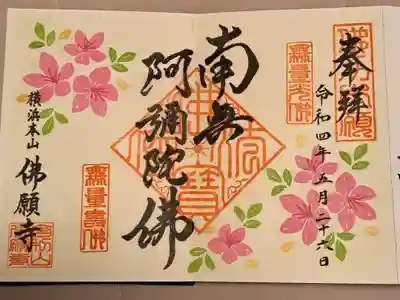 奉拝
令和四年五月二十六日
南無
阿彌陀佛
無量壽佛
横浜本山
佛願寺